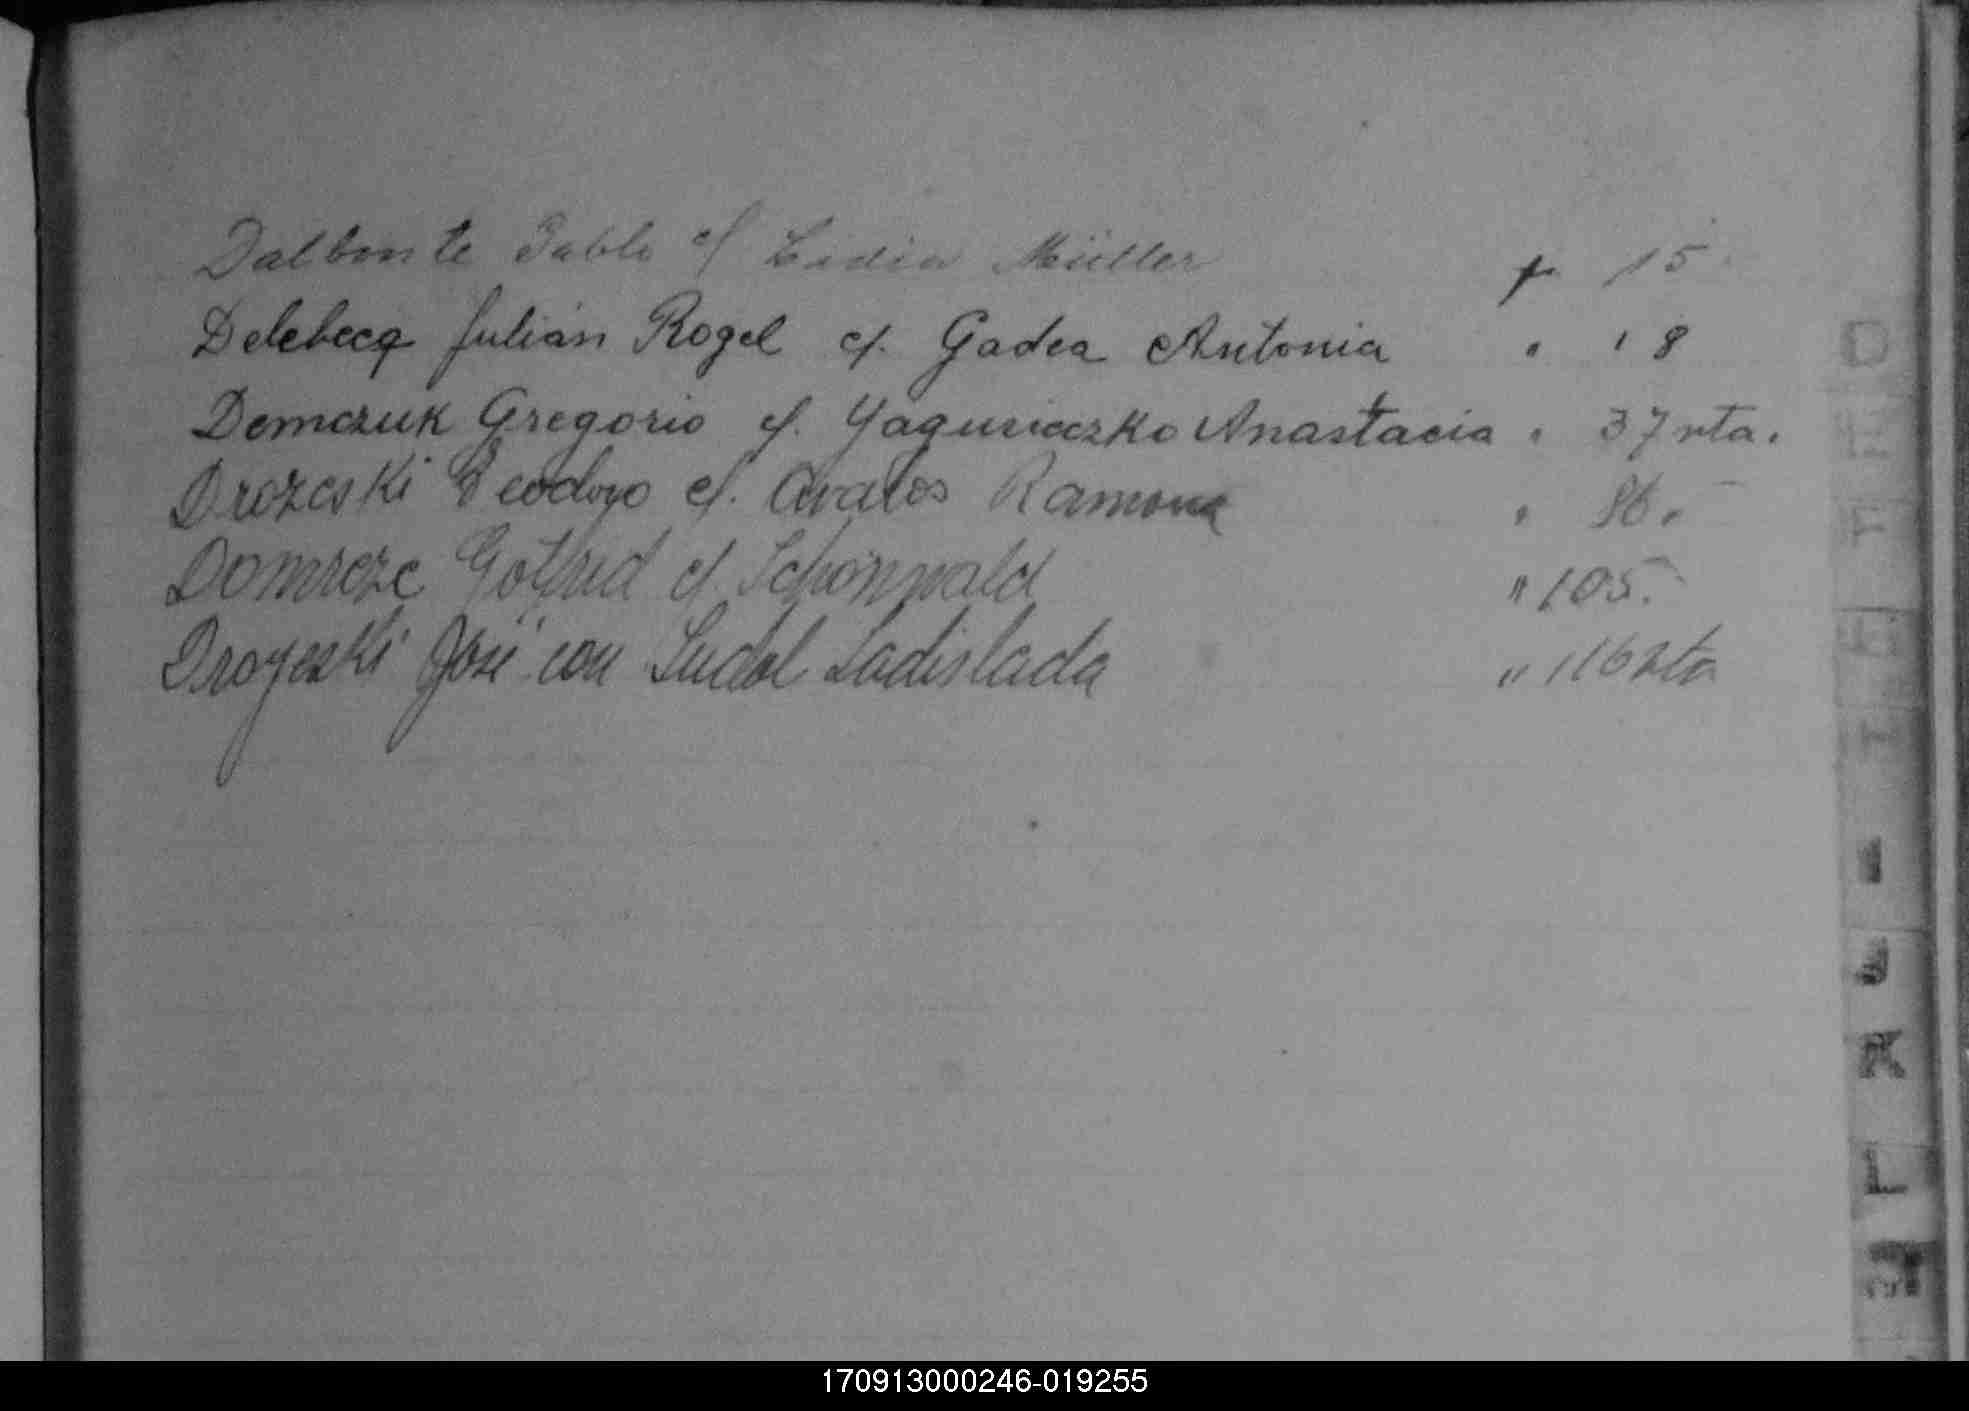 Dalbonte Pablo c/ Lidia Müller f 15
Delebecq Julián Rogel c/. Gadea Antonia " 18
Demczuk Gregorio c/. Anastacia " 37 vta.
Drozeski Teodoro c/. Avalos Ramona " 86.
Domreze Gotfrid c/ Schonwald " 105.
Drozeski José con Sudol Ladislada " 116 vta
D
I
J
K
L
M
170913000246-019255